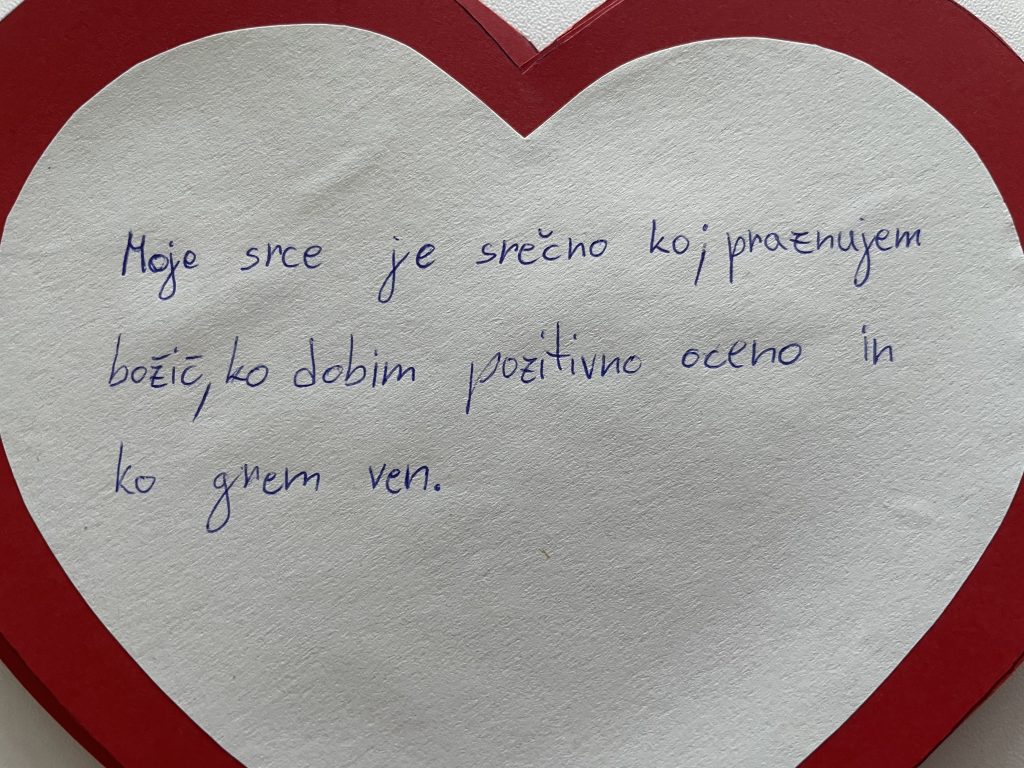 Moje srce je srečno ko; praznujem
božič, ko dobim pozitivno oceno in
ko grem ven.